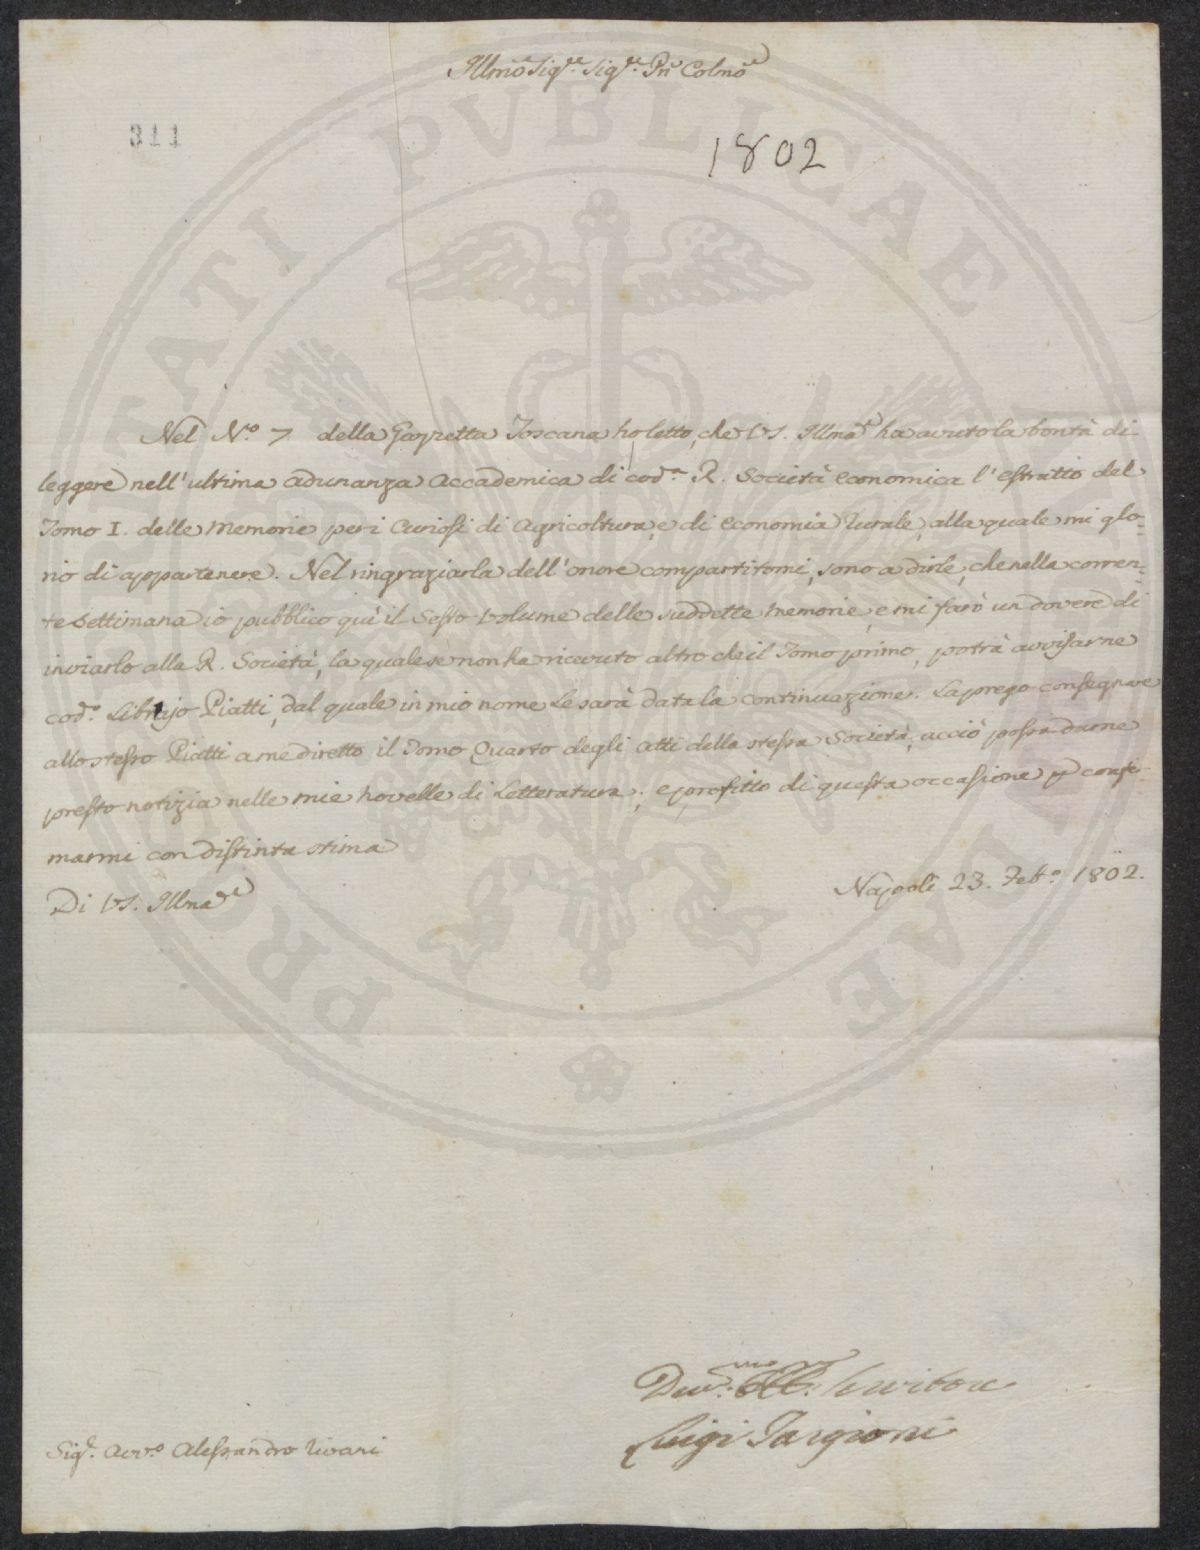 Illmo Sigre. Sigre. Pne Colmo
311
1802
Nel No. 7 della Gazzetta Toscana ho letto, che VS. Illma ha avuto la bontà di
leggere nell'ultima adunanza Accademica di coda. R. Società economica l'estratto del
Tomo I. delle Memorie per i Curiosi di Agricoltura, e di economia rurale, alla quale mi glo-
rio di appartenere. Nel ringraziarla dell'onore compartitomi, sono a dirle, che nella corren-
te settimana io pubblico quì il Sesto Volume delle suddette memorie, e mi farò un dovere di
inviarlo alla R. Società, la quale se non ha ricevuto altro che il Tomo primo, potrà avvisarne
codo. Librajo Piatti, dal quale in mio nome Le sarà data la continuazione. La prego consegnare
allo stesso Piatti a me diretto il Tomo Quarto degli atti della stessa Società, acciò possa darne
presto notizia nelle mie novelle di Letteratura; e profitto di questa occasione per confer-
marmi con distinta stima
Di VS. Illma
Napoli 23. Febo. 1802.
Devmo. Servitore
Luigi Targioni
Sigr. Avvo. Alessandro Rivani
PROSPERITATI PVBLICAE AVGENDAE